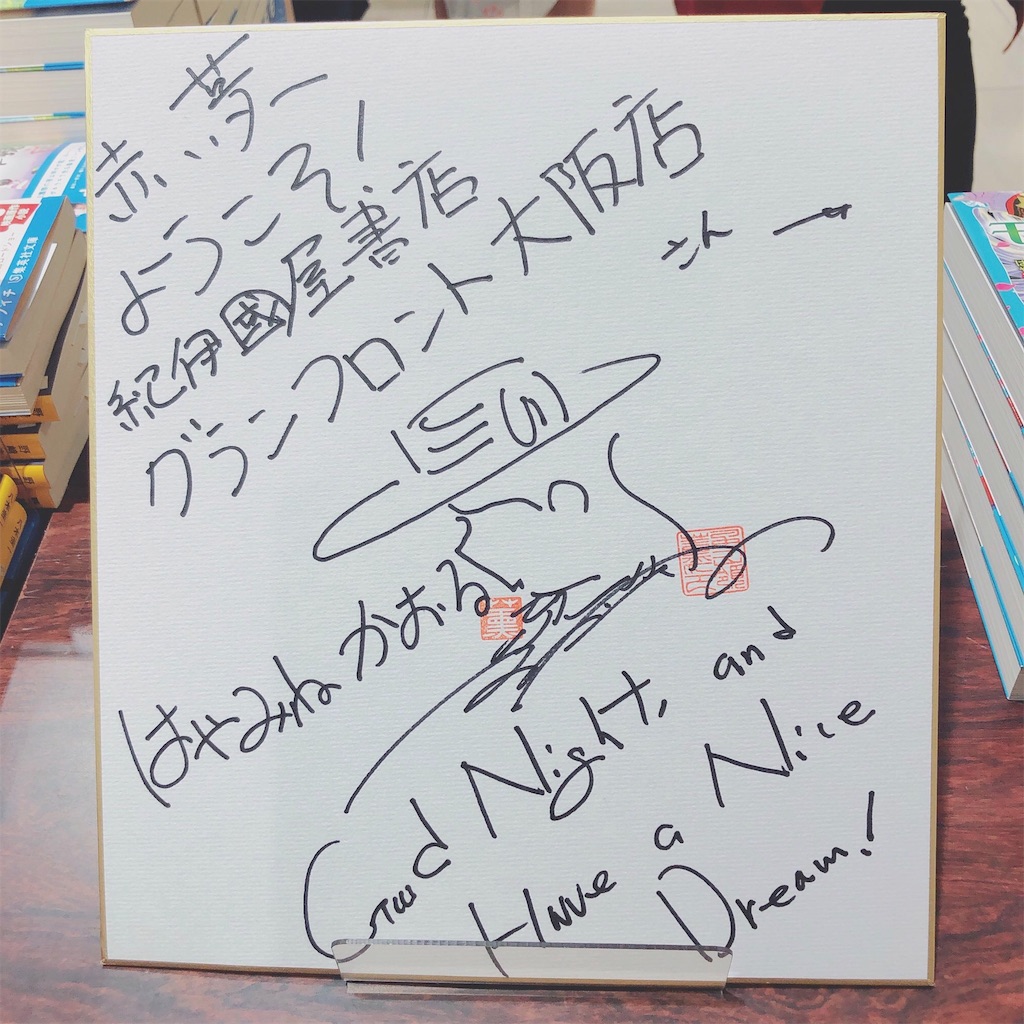 赤い夢へ
ようこそ!
紀伊國屋書店
グランフロント大阪店
さん
はやみねかおる
薫
Good Night, and
Have a Nice
Dream!
集英社文庫